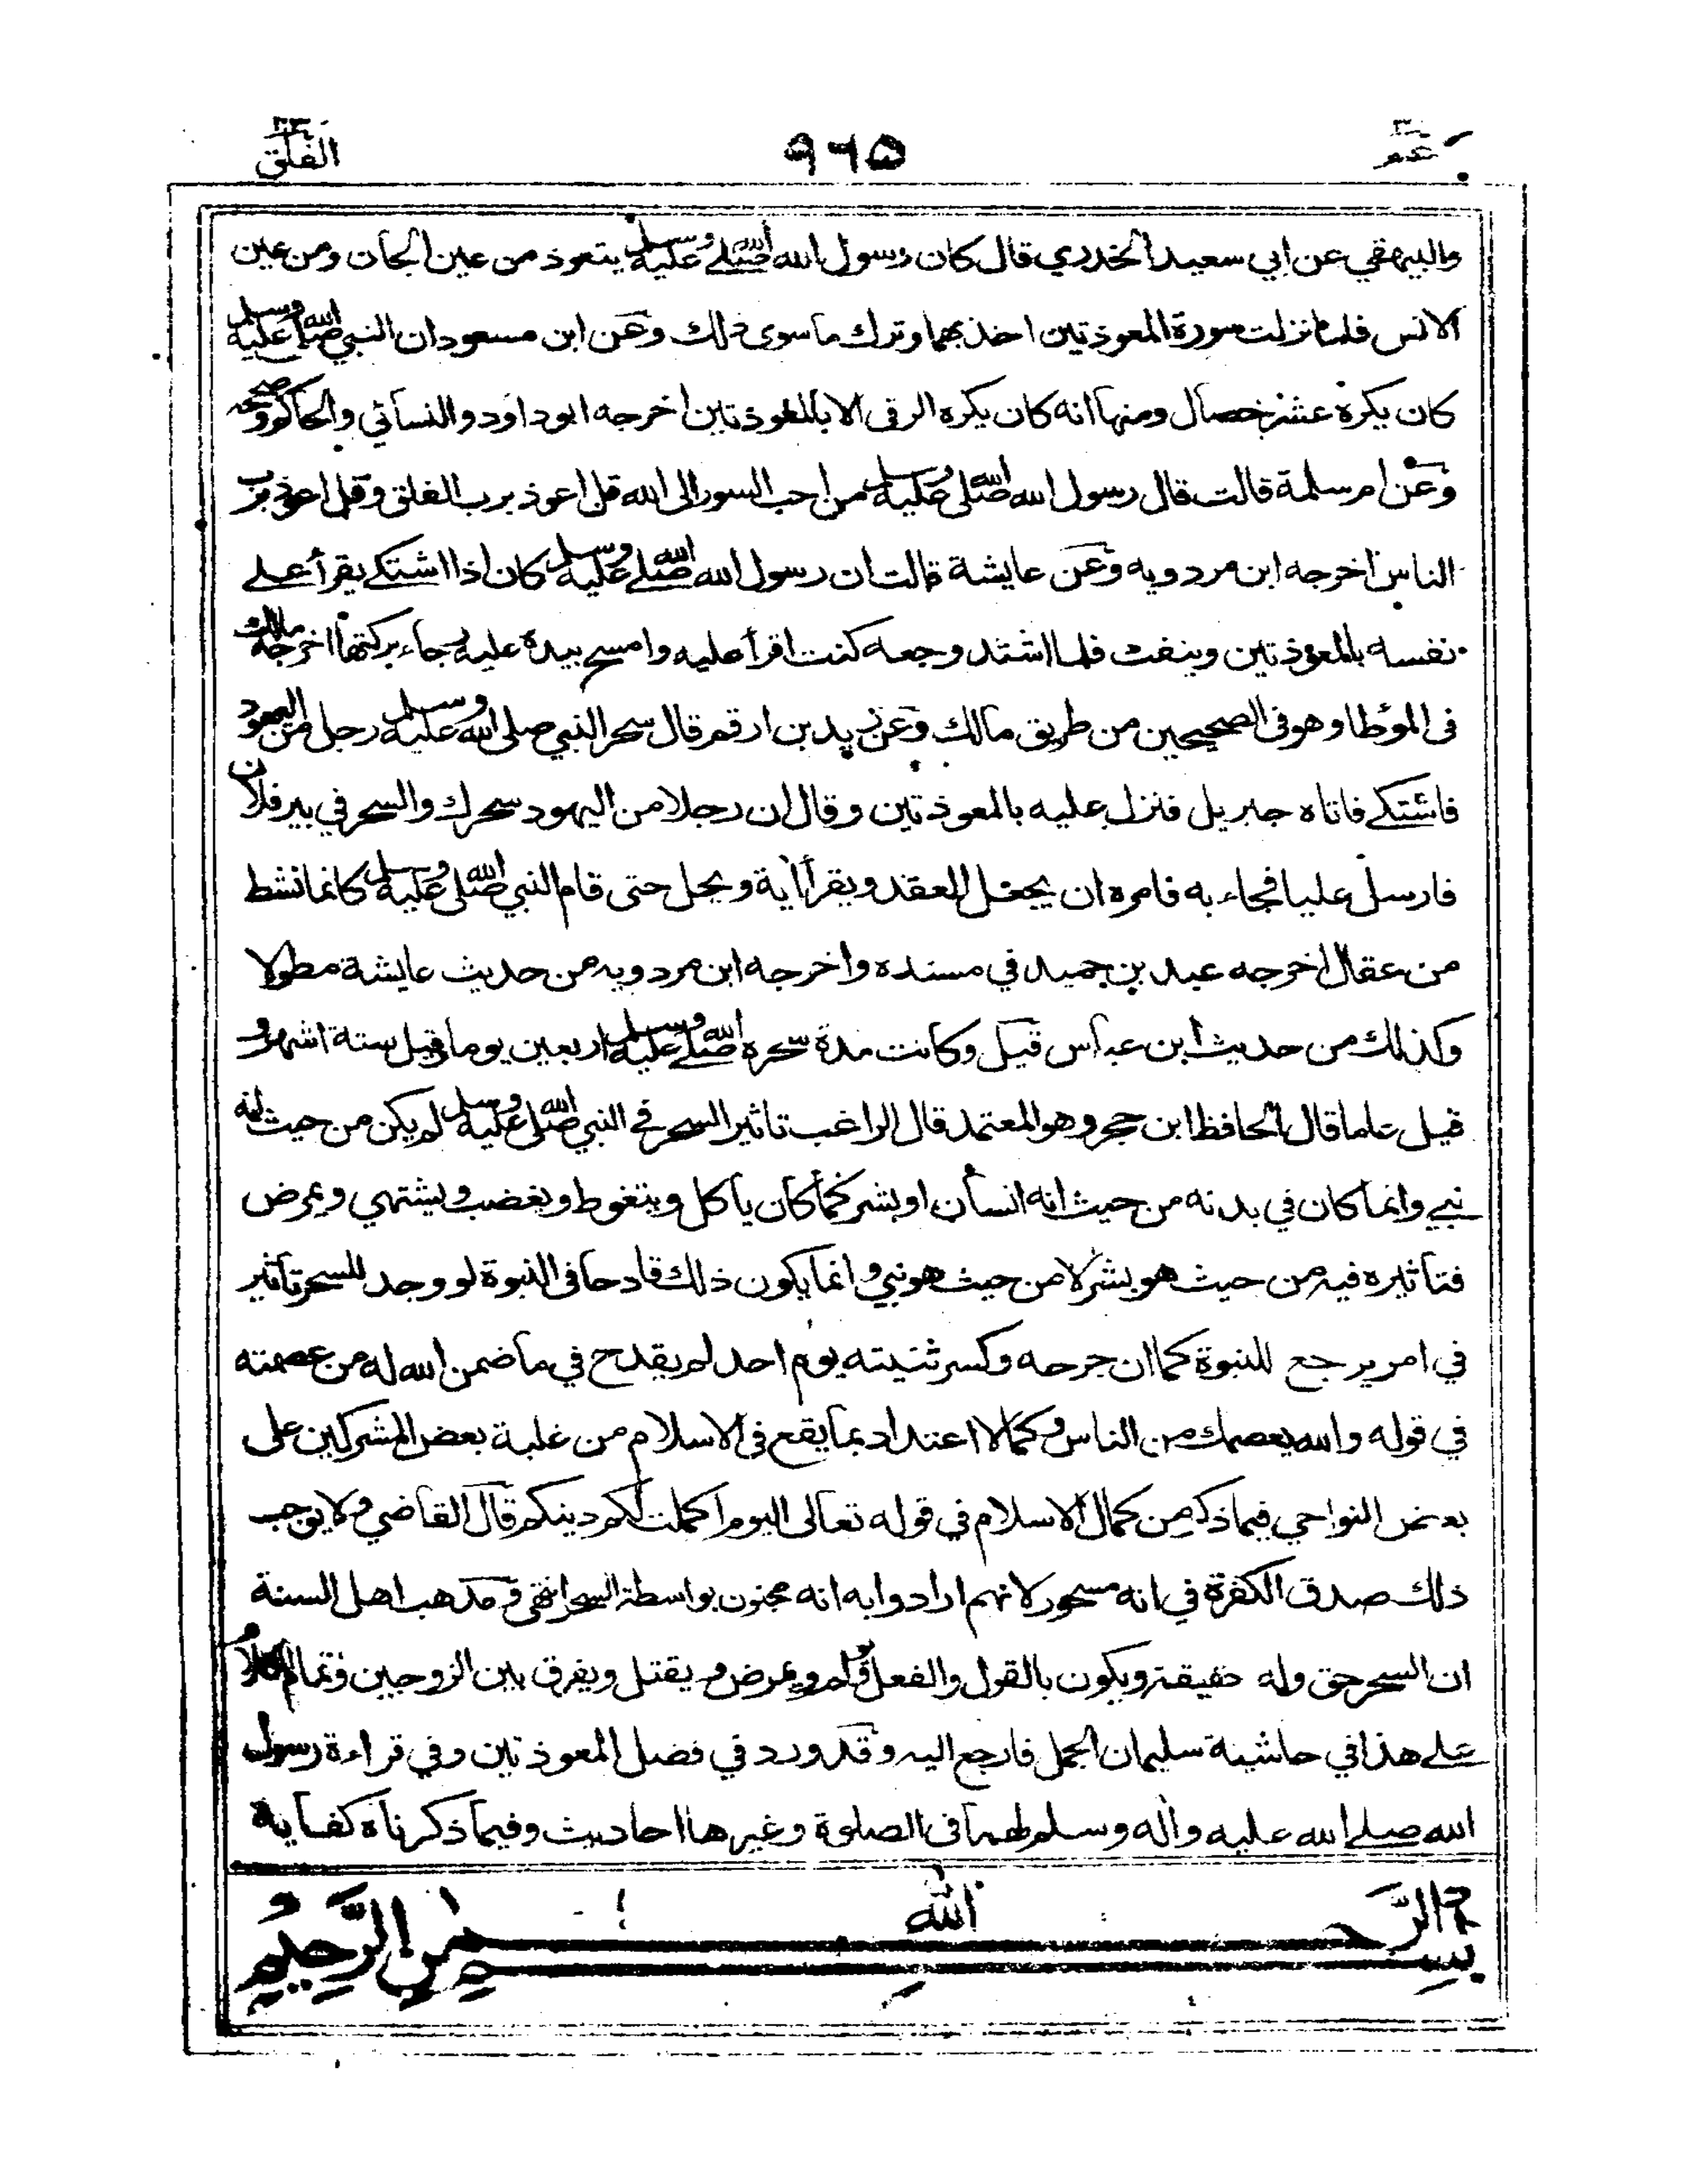 عم ٣٠
٩٦٥
الفلق
والبيهقي عن ابي سعيد الخدري قال كان رسول الله صلى الله عليه وسلم يتعوذ من عين الجان ومن عين
الانس فلما نزلت سورة المعوذتين اخذ بهما وترك ما سوى ذلك وعن ابن مسعود ان النبي صلى الله عليه وسلم
كان يكره عشر خصال ومنها انه كان يكره الرقى الا بالمعوذتين اخرجه ابو داود والنسائي والحاكم وصححه
وعن ام سلمة قالت قال رسول الله صلى الله عليه وسلم من احب السور الى الله قل اعوذ برب الفلق وقل اعوذ برب
الناس اخرجه ابن مردويه وعن عايشة قالت ان رسول الله صلى الله عليه وسلم كان اذا اشتكى يقرأ على
نفسه بالمعوذتين وينفث فلما اشتد وجعه كنت اقرأ عليه وامسح بيده عليه رجاء بركتها اخرجه مالك
فى المؤطا وهو فى الصحيحين من طريق مالك وعن زيد بن ارقم قال سحر النبي صلى الله عليه وسلم رجل من اليهود
فاشتكى فاتاه جبريل فنزل عليه بالمعوذتين وقال ان رجلا من اليهود سحرك والسحر في بير فلان
فارسل عليا فجاء به فامره ان يحل العقد ويقرأ اية ويحل حتى قام النبي صلى الله عليه وسلم كانما نشط
من عقال اخرجه عبد بن حميد في مسنده واخرجه ابن مردويه من حديث عايشة مطولا
وكذلك من حديث ابن عباس قيل وكانت مدة سحره صلى الله عليه وسلم اربعين يوما وقيل ستة اشهر و
قيل عاما قال الحافظ ابن حجر وهو المعتمد قال الراغب تاثير السحر في النبي صلى الله عليه وسلم لم يكن من حيث انه
نبي وانما كان في بدنه من حيث انه انسان او بشر كما كان ياكل ويتغوط ويغضب ويشتهي ويمرض
فتاثيره فيه من حيث هو بشر لا من حيث هو نبي وانما يكون ذلك قادحا فى النبوة لو وجد للسحر تاثير
في امر يرجع للنبوة كما ان جرحه وكسر ثنيته يوم احد لم يقدح في ما ضمن الله له من عصمته
في قوله والله يعصمك من الناس وكما لا اعتداد بما يقع فى الاسلام من غلبة بعض المشركين على
بعض النواحي فيما ذكر من كمال الاسلام في قوله تعالى اليوم اكملت لكم دينكم قال القاضي ولا يوجب
ذلك صدق الكفرة في انه مسحور لانهم ارادوا به انه مجنون بواسطة السحر انتهى ومذهب اهل السنة
ان السحر حق وله حقيقة ويكون بالقول والفعل ويمرض ويقتل ويفرق بين الزوجين وتمام الكلام
على هذا في حاشية سليمان الجمل فارجع اليه وقد ورد في فضل المعوذتين وفي قراءة رسول
الله صلى الله عليه واله وسلم لهما فى الصلوة وغيرها احاديث وفيما ذكرناه كفاية
بسم الله الرحمن الرحيم